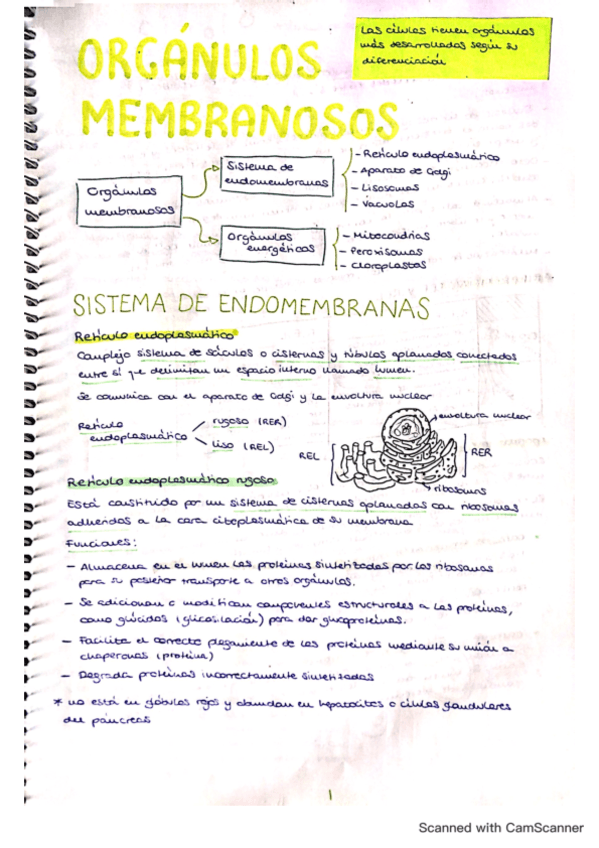 Las células tienen orgánulos
más desarrollados según su
diferenciación
ORGÁNULOS
MEMBRANOSOS
Orgánulos
membranosos
Sistema de
endomembranas
- Retículo endoplasmático
- Aparato de Golgi
- Lisosomas
- Vacuolas
Orgánulos
energéticos
- Mitocondrias
- Peroxisomas
- Cloroplastos
SISTEMA DE ENDOMEMBRANAS
Retículo endoplasmático
Complejo sistema de sáculos o cisternas y túbulos aplanados conectados
entre sí que delimitan un espacio interno llamado lumen.
Se comunica con el aparato de Golgi y la envoltura nuclear
Retículo
endoplasmático
rugoso (RER)
liso (REL)
envoltura nuclear
REL
RER
ribosomas
Retículo endoplasmático rugoso
Está constituido por un sistema de cisternas aplanadas con ribosomas
adheridos a la cara citoplasmática de su membrana
Funciones:
- Almacena en el lumen las proteínas sintetizadas por los ribosomas
para su posterior transporte a otros orgánulos.
- Se adicionan o modifican componentes estructurales a las proteínas,
como glúcidos (glicosilación) para dar glucoproteínas.
- Facilita el correcto plegamiento de las proteínas mediante su unión a
chaperonas (proteína)
- Degrada proteínas incorrectamente sintetizadas
* no está en glóbulos rojos y abundan en hepatocitos o células glandulares
del páncreas
1
Scanned with CamScanner